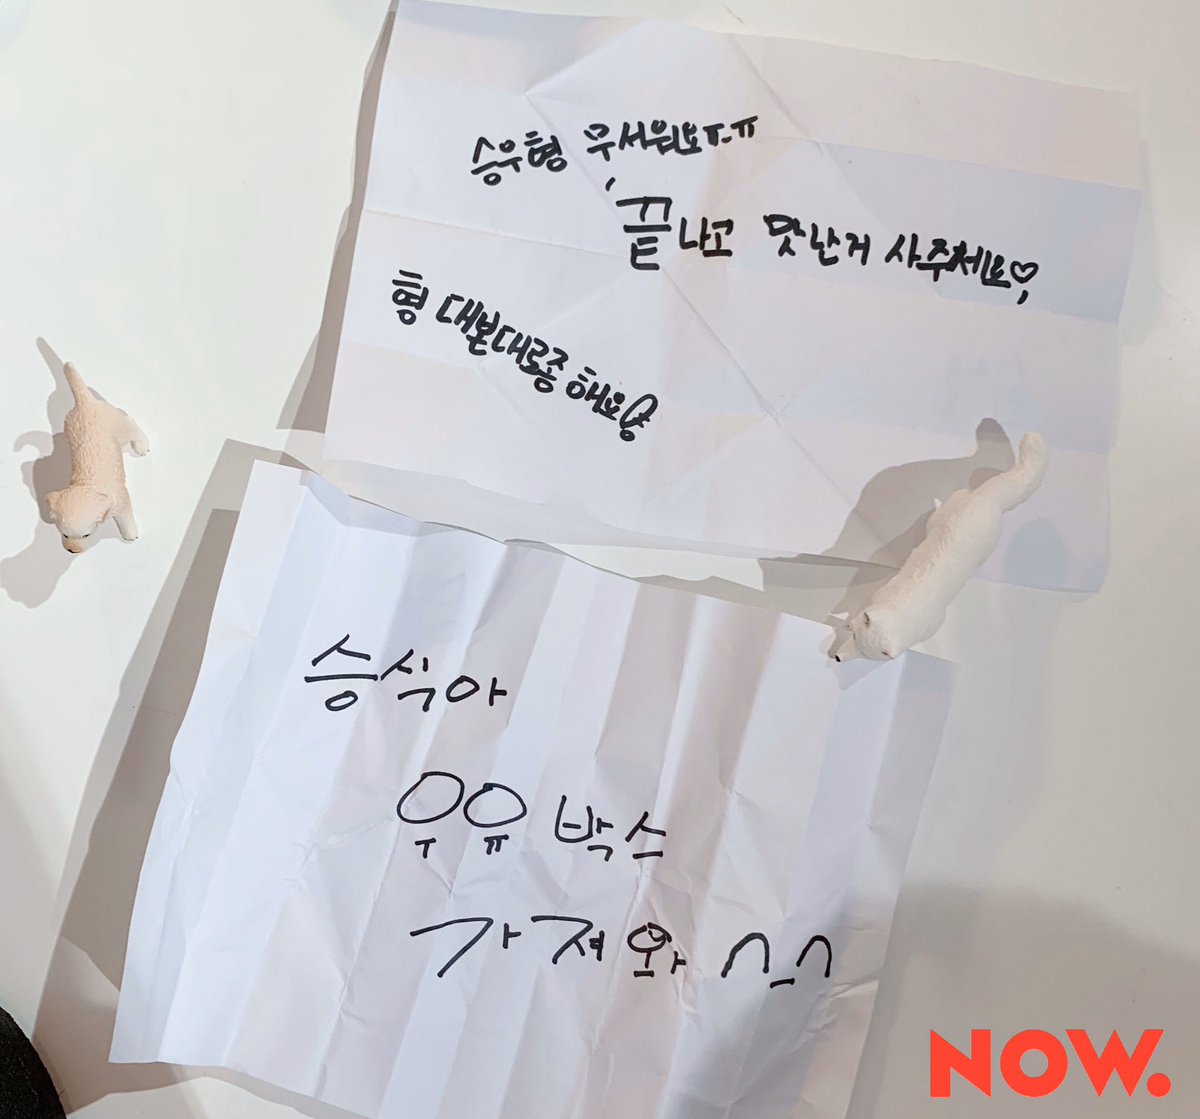 승우형 무서워요ㅜ-ㅠ
끝나고 맛난거 사주세요♡,
형 대본대로좀 해요양
승식아
우유 박스
가져와 ^_^
NOW.